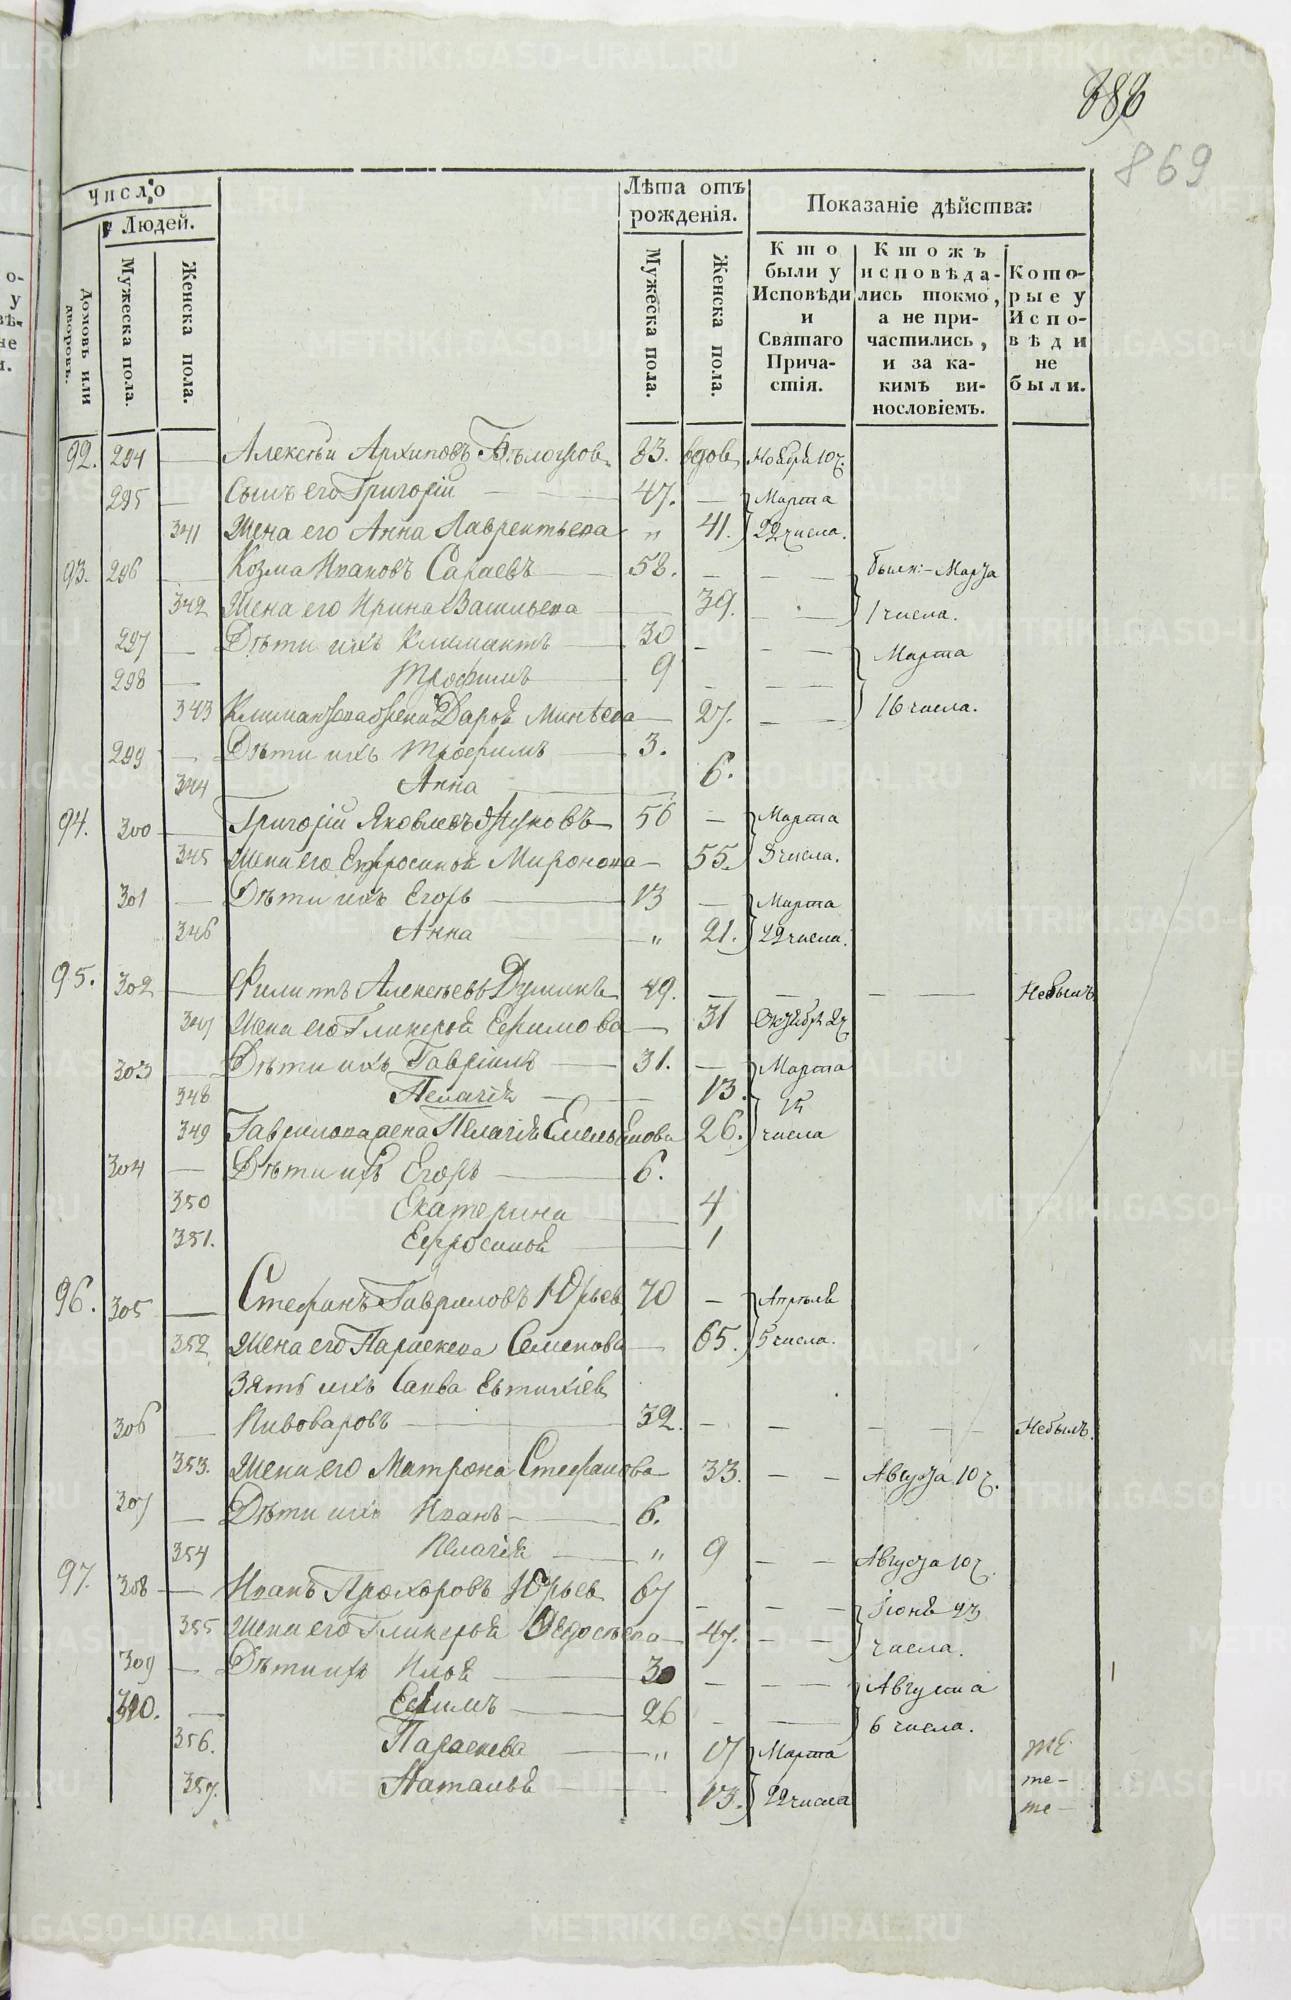 888
869
Число
Людей.
Домовъ или дворовъ.
Мужеска пола.
Женска пола.
Лѣта отъ рожденія.
Мужеска пола.
Женска пола.
Показаніе дѣйства:
Кто были у Исповѣди и Святаго Причастія.
Ктожъ исповѣдались токмо, а не причастились, и за какимъ винословіемъ.
Которые у Исповѣди не были.
92. 294 — Алексѣй Архиповъ Бѣлогуров 83. вдов Ноября 10 ч.
295 — Сынъ его Григорій — 47. — Марта
341 Жена его Анна Лаврентьева „ 41. 22 числа.
93. 296 — Козма Ивановъ Сараевъ — 58. — — — Марта
342 Жена его Ирина Васильева — 39. — — 1 числа.
297 — Дѣти ихъ Климантъ — 30 — — — Марта
298 — Трофимъ — 9 — — —
343 Дарья Минѣева — 27. — — 16 числа.
299 — Дѣти ихъ Трофимъ — 3.
344 Анна — 6.
94. 300 — Григорій Яковлевъ 56 — Марта
345 Жена его Ефросинья Миронова — 55. 8 числа.
301 — Дѣти ихъ Егоръ — 13 — Марта
346 Анна — „ 21. 22 числа.
95. 302 — Филипъ Алексѣевъ 49. — — — — Небылъ
347 Жена его Гликерья Ефимова — 31 Октября
303 — Дѣти ихъ Гавріилъ — 31. — Марта
348 Пелагія — 13. 15
349 Гаврилова жена Пелагія Емельянова 26. числа
304 — Дѣти ихъ Егоръ — 6.
350 Екатерина — 4
351. Ефросинья — 1
96. 305 — Стефанъ Гавриловъ Юрьев 70 — Апрѣля
352 Жена его Параскева Семенова — 65. 5 числа.
Зять ихъ Савва Евтихіев
306 — Пивоваровъ — 32. — — — — Небылъ.
353. Жена его Матрона Стефанова 33. — — Августа 10 ч.
307 — Дѣти ихъ Иванъ — 6.
354 Пелагія — „ 9 — — Августа 10 ч.
97. 308 — Иванъ Прохоровъ Юрьев 67 — — — Іюня 23
355 Жена его Гликерья Федосѣева — 47. — — числа.
309 — Дѣти ихъ Илья — 30 — — — Августа
310. — Ефимъ — 26 — — 6 числа.
356. Параскева — „ 17 Марта
357. Наталья — 13. 22 числа